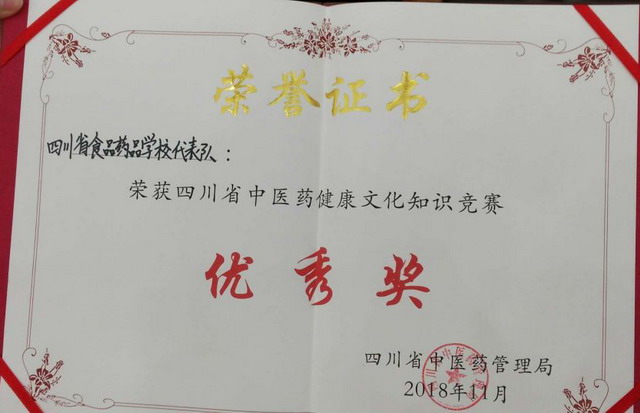 荣誉证书
四川省食品药品学校代表队：
荣获四川省中医药健康文化知识竞赛
优秀奖
四川省中医药管理局
2018年11月